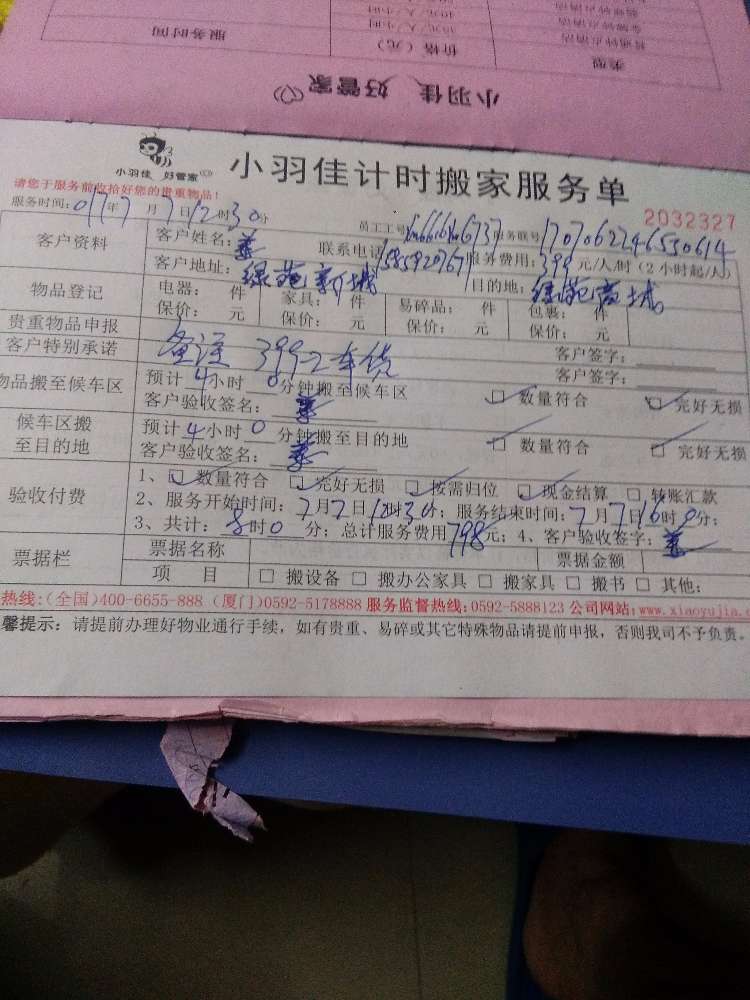 普通钟点清洁 35元/人/小时
类型 价格（元） 服务时间
小羽佳 好管家
小羽佳 好管家
小羽佳计时搬家服务单
请您于服务前收拾好您的贵重物品！
2032327
服务时间：017年7月7日12时30分 员工工号 服务联号1707062246550614
客户资料 客户姓名： 联系电话 服务费用：399元/人/时（2小时起/人）
客户地址：绿苑新城 目的地：绿苑商城
物品登记 电器： 件 家具： 件 易碎品： 件 包裹： 件
保价： 元 保价： 元 保价： 元 保价： 元
贵重物品申报 客户签字：
客户特别承诺 备注 399 2车货 客户签字：
物品搬至候车区 预计4小时0分钟搬至候车区 数量符合 完好无损
客户验收签名：
候车区搬至目的地 预计4小时0分钟搬至目的地 数量符合 完好无损
客户验收签名：
验收付费 1、数量符合 完好无损 按需归位 现金结算 转账汇款
2、服务开始时间：7月7日12时30分；服务结束时间：7月7日16时0分；
3、共计：8时0分；总计服务费用798元；4、客户验收签字：
票据栏 票据名称 票据金额
项 目 搬设备 搬办公家具 搬家具 搬书 其他：
热线：(全国)400-6655-888 (厦门)0592-5178888 服务监督热线：0592-5888123 公司网站：www.xiaoyujia.c
馨提示：请提前办理好物业通行手续，如有贵重、易碎或其它特殊物品请提前申报，否则我司不予负责。